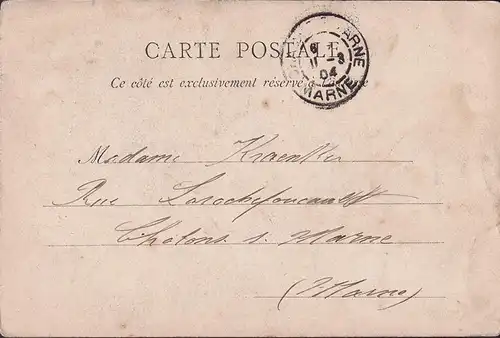 CARTE POSTALE
Ce côté est exclusivement réservé à
ARNE
6
11 - 3
04
MARNE
Madame Kraenker
Rue Larochefoucault
Chalons s. Marne
(Marne)